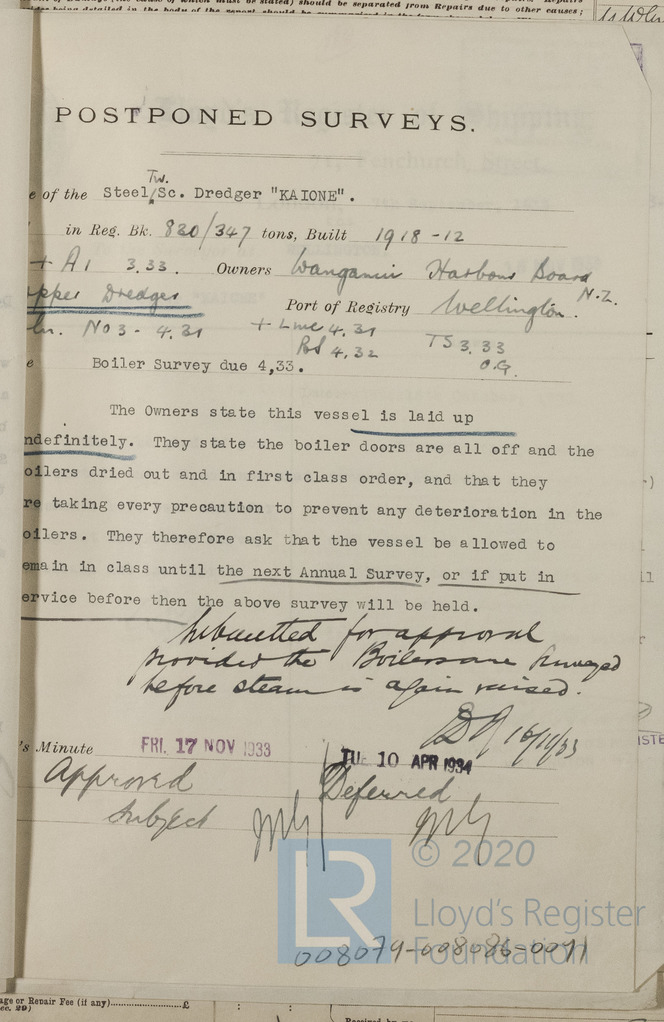 being detailed in the body of the report should be summarized in the form
POSTPONED SURVEYS.
e of the Steel Tw. Sc. Dredger "KAIONE".
in Reg. Bk. 830/347 tons, Built 1918-12
+ A1 3.33. Owners Wanganui Harbour Board N.Z.
pper Dredger Port of Registry Wellington.
No 3 - 4.31 + LMC 4.31
BS 4.32 TS 3.33
O.G.
e Boiler Survey due 4,33.
The Owners state this vessel is laid up
ndefinitely. They state the boiler doors are all off and the
oilers dried out and in first class order, and that they
re taking every precaution to prevent any deterioration in the
oilers. They therefore ask that the vessel be allowed to
emain in class until the next Annual Survey, or if put in
ervice before then the above survey will be held.
Submitted for approval
provided the Boilers are surveyed
before steam is again raised.
16/11/33
's Minute FRI. 17 NOV 1933 TUE 10 APR 1934
Approved Deferred
Subject
© 2020
LR Lloyd's Register
Foundation
008079-008086-0071
age or Repair Fee (if any) £